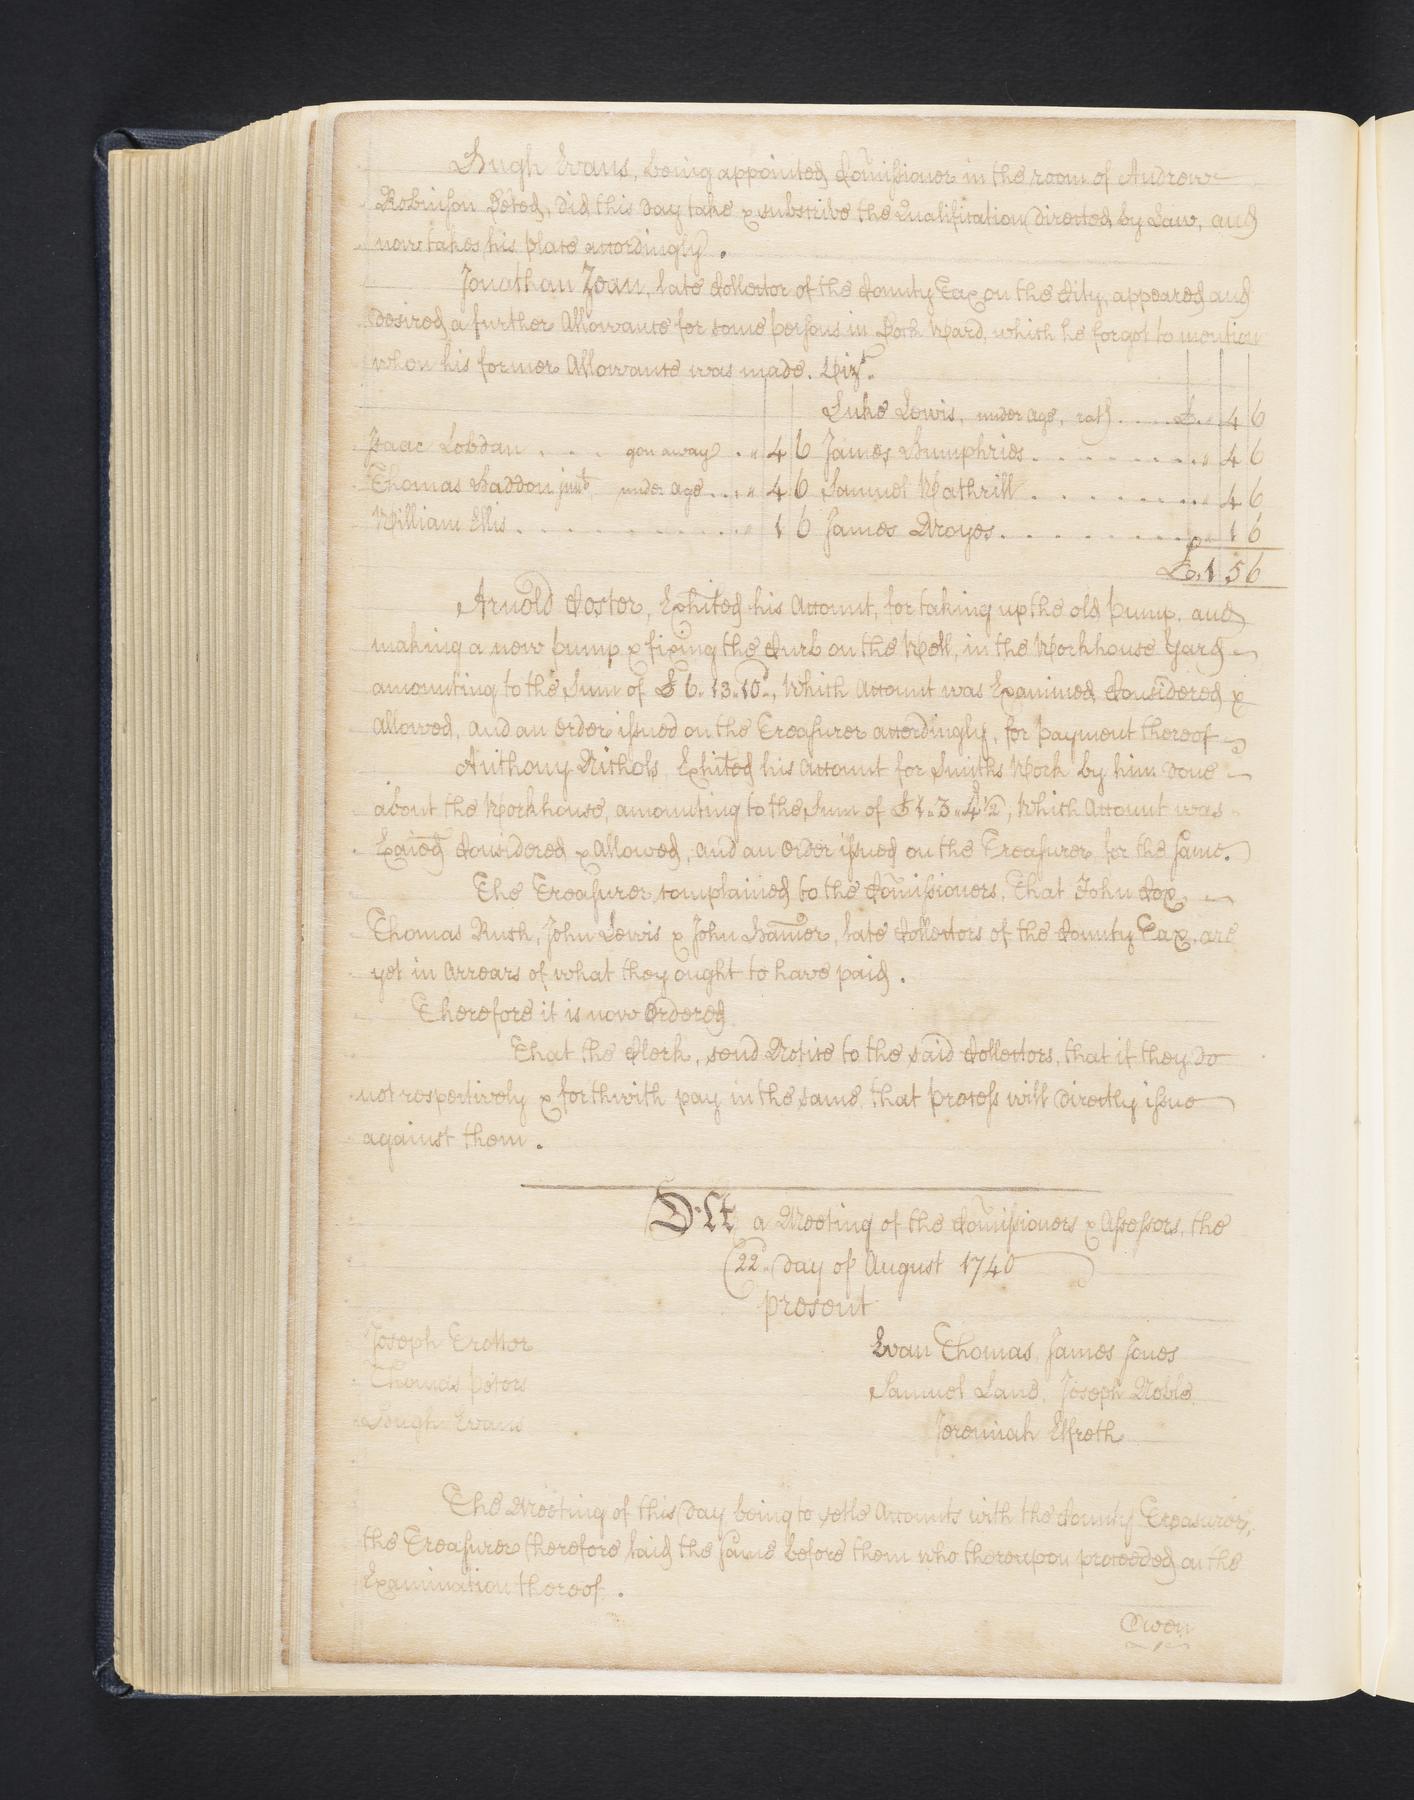 Hugh Evans, being appointed Com̃issioner in the room of Andrew
Robinson Deced, did this day take & subscribe the Qualification directed by Law, and
now takes his place accordingly.
Jonathan Zean, late Collector of the County Tax on the City, appeared and
desired a further Allowance for some persons in Dock Ward, which he forgot to mention
when his former Allowance was made. Vizt.
Luke Lewis, under age, each ..... £ „ 4 6
Isaac Lobdan . . . gon away . „ 4 6 James Humphries . . . . . . . . „ 4 6
Thomas Haddon junr, under age . . . „ 4 6 Samuel Wathrill . . . . . . . . „ 4 6
William Ellis . . . . . . . . . . „ 1 6 James Moyes . . . . . . . . „ 1 6
£ 1 5 6
Arnold Coster, Exhited his Account, for taking up the old pump, and
making a new pump & fixing the Curb on the Well, in the Workhouse Yard
amounting to the Sum of £6. 13. 10d., Which Account was Examined, Considered &
Allowed, and an Order issued on the Treasurer accordingly, for payment thereof
Anthony Nichols, Exhited his Account for Smiths Work by him done
about the Workhouse, amounting to the Sum of £1. 3. 4d½, Which Account was
Exaied Considered & Allowed, and an Order issued on the Treasurer for the same.
The Treasurer complained to the Com̃issioners, That John Cox,
Thomas Rush, John Lewis & John Ham̃er, late Collectors of the County Tax, are
yet in Arrears of what they ought to have paid.
Therefore it is now Ordered
That the Clerk, send Notice to the said Collectors, that if they do
not respectively & forthwith pay in the same, that process will directly issue
against them.
At a Meeting of the Com̃issioners & Assessors, the
22d. day of August 1740
present
Joseph Trotter
Evan Thomas, James Jones
Thomas Peters
Samuel Lane, Joseph Noble,
Hugh Evans
Jeremiah Elfreth
The Meeting of this day being to setle Accounts with the County Treasurer,
the Treasurer therefore laid the same before them who thereupon proceeded on the
Examination thereof.
Owen